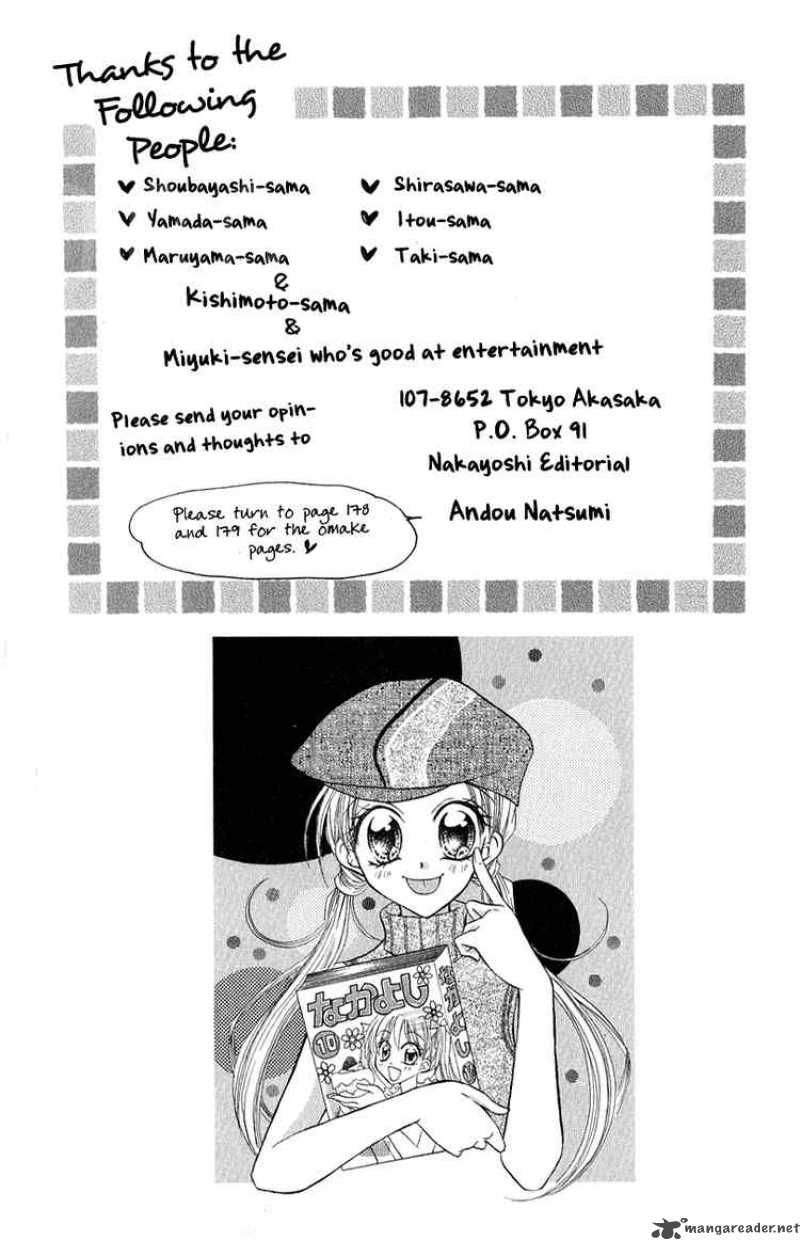 Thanks to the
Following
People:
♥ Shoubayashi-sama
♥ Shirasawa-sama
♥ Yamada-sama
♥ Itou-sama
♥ Maruyama-sama
♥ Taki-sama
&
Kishimoto-sama
&
Miyuki-sensei who's good at entertainment
Please send your opin-
ions and thoughts to
107-8652 Tokyo Akasaka
P.O. Box 91
Nakayoshi Editorial
Andou Natsumi
Please turn to page 178
and 179 for the omake
pages. ♥
なかよし
10
なかよし
mangareader.net